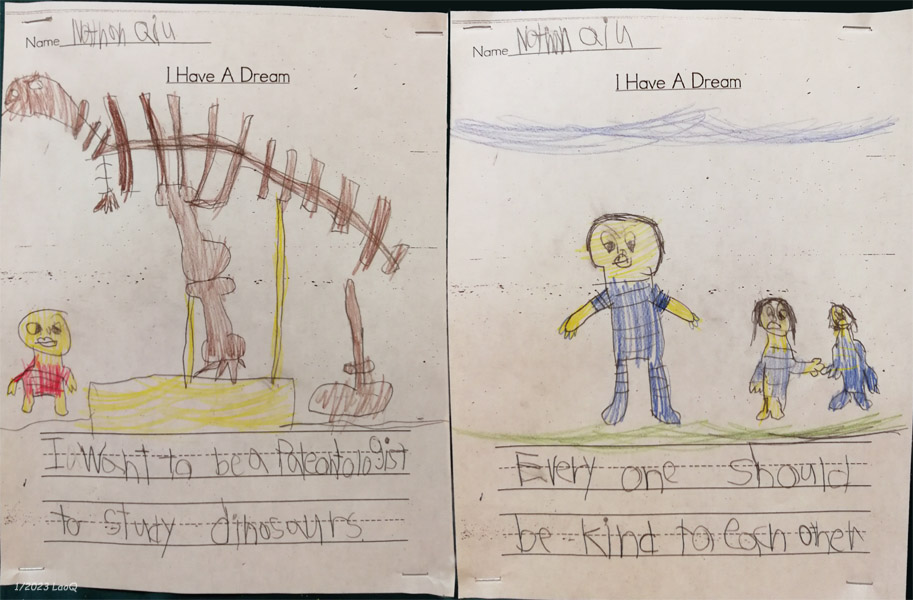 Name Nathan Qiu
I Have A Dream
I Want to be a Paleontologist
to study dinosaurs
1/2023 LaoQ
Name Nathan Qiu
I Have A Dream
Every one should
be kind to Each other